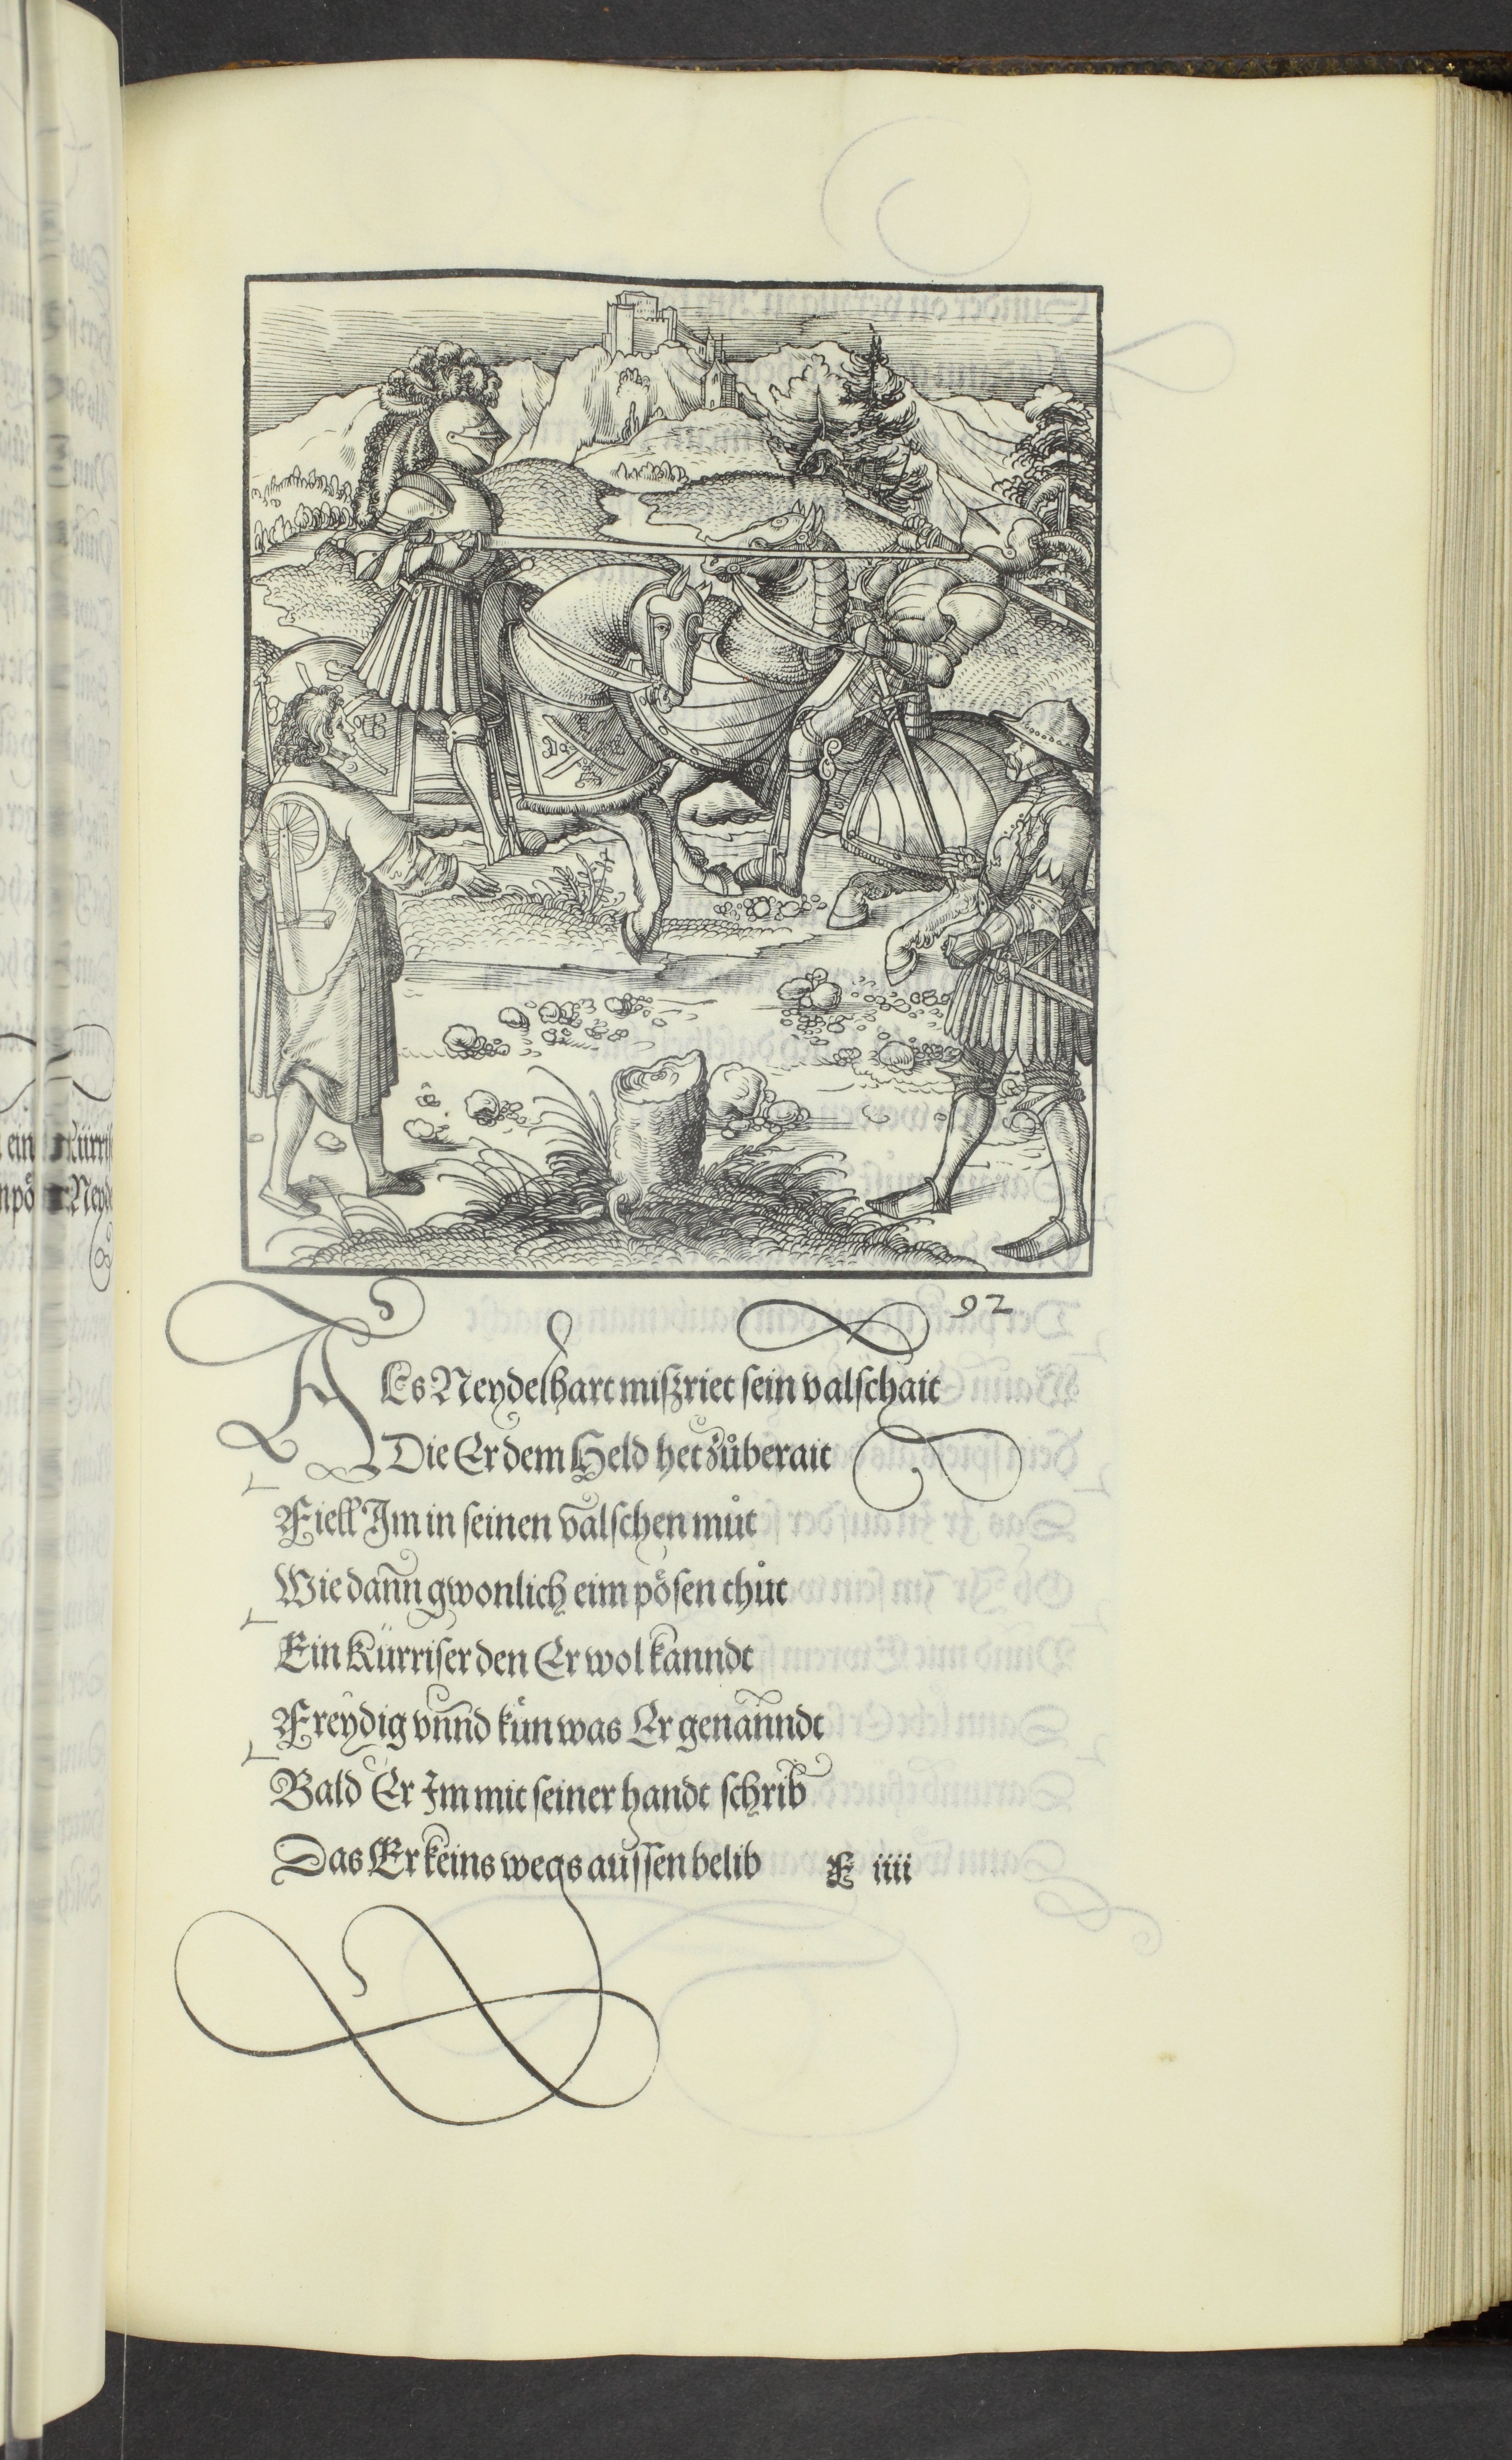 92
ALs Neydelhart miſzriet ſein valſchait
Die Er dem Held het zůberait
Fiell Im in ſeinen valſchen můt
Wie dann gwonlich eim pöſen thůt
Ein Kürriſer den Er wol kanndt
Freydig vnnd kün was Er genanndt
Bald Er Im mit ſeiner handt ſchrib
Das Er keins wegs auſſen belib
F iiii